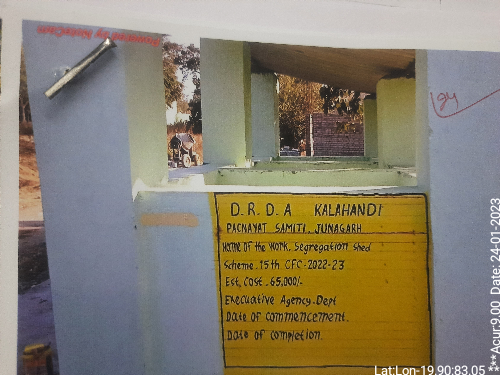 D.R.D.A KALAHANDI
PACNAYAT SAMITI. JUNAGARH
NAME OF THE WORK. Segregation Shed
Scheme. 15th CFC-2022-23
Est, Cost. 65,000/-
Execuative Agency.Dept
Date of commencement.
Date of completion.
94
Lat:Lon-19.90:83.05
***Acur:9.00 Date: 24-01-2023